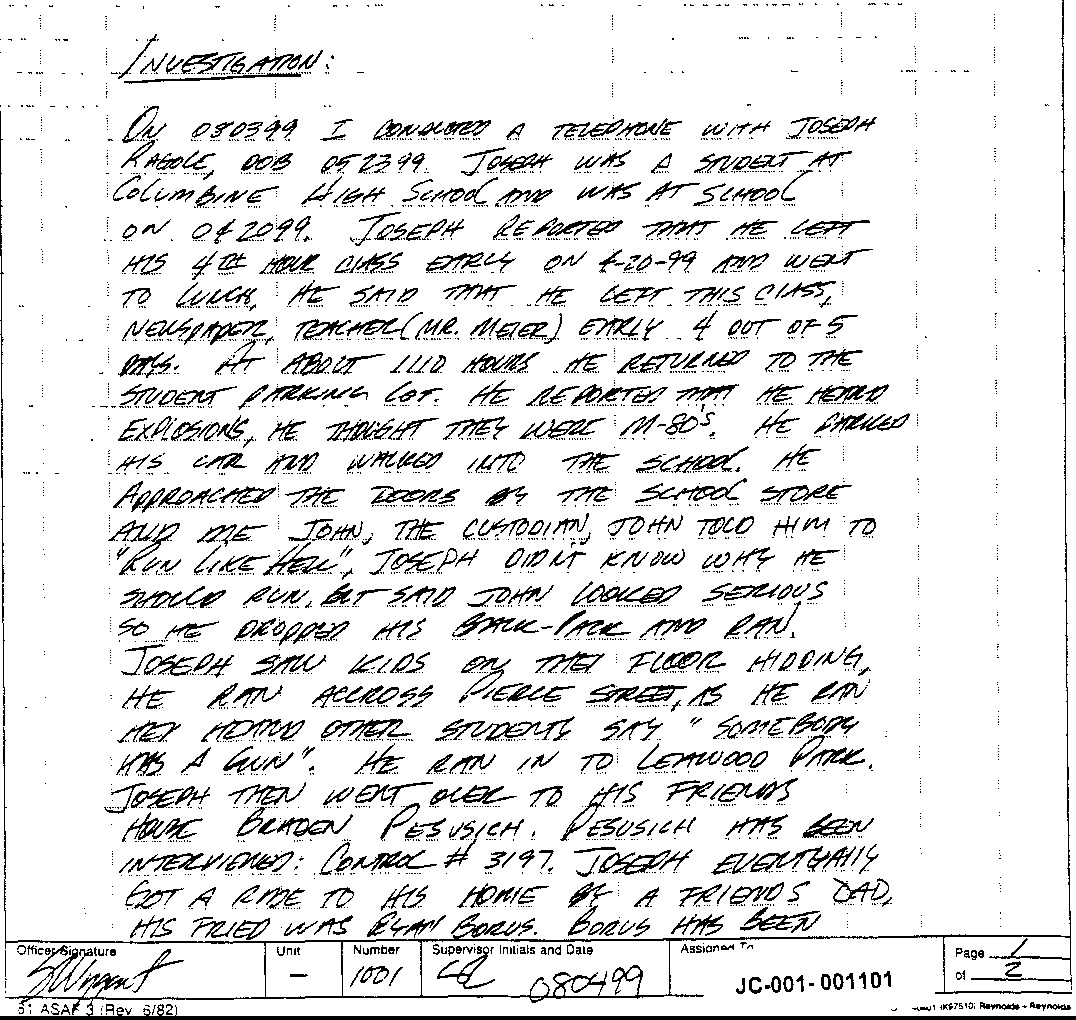 INVESTIGATION:
ON 080399 I CONDUCTED A TELEPHONE WITH JOSEPH
DOB 052399. JOSEPH WAS A STUDENT AT
COLUMBINE HIGH SCHOOL AND WAS AT SCHOOL
ON 042099. JOSEPH REPORTED THAT HE LEFT
HIS 4TH HOUR CLASS EARLY ON 4-20-99 AND WENT
TO LUNCH, HE SAID THAT HE LEFT THIS CLASS,
NEWSPAPER, TEACHER (MR. MEIER) EARLY 4 OUT OF 5
DAYS. AT ABOUT 1110 HOURS HE RETURNED TO THE
STUDENT PARKING LOT. HE REPORTED THAT HE HEARD
EXPLOSIONS, HE THOUGHT THEY WERE M-80'S. HE PARKED
HIS CAR AND WALKED INTO THE SCHOOL. HE
APPROACHED THE DOORS BY THE SCHOOL STORE
AND ME JOHN, THE CUSTODIAN, JOHN TOLD HIM TO
"RUN LIKE HELL", JOSEPH DIDN'T KNOW WHY HE
SHOULD RUN, BUT SAID JOHN LOOKED SERIOUS
SO HE DROPPED HIS BACK-PACK AND RAN.
JOSEPH SAW KIDS ON THE FLOOR HIDDING,
HE RAN ACCROSS PIERCE STREET, AS HE RAN
HEARD OTHER STUDENTS SAY "SOMEBODY
HAS A GUN". HE RAN IN TO LEAWOOD PARK.
JOSEPH THEN WENT OVER TO HIS FRIENDS
HOUSE BRADEN PESUSICH. PESUSICH HAS BEEN
INTERVIEWED: CONTROL # 3197. JOSEPH EVENTUALLY
GOT A RIDE TO HIS HOME BY A FRIENDS DAD,
HIS FRIED WAS RYAN BORUS. BORUS HAS BEEN
Officer Signature
Unit
–
Number
1001
Supervisor Initials and Date
080499
Assigned To
JC-001-001101
Page 1
of 2
51 ASAF 3 (Rev 6/82)
(K97510) Reynolds + Reynolds